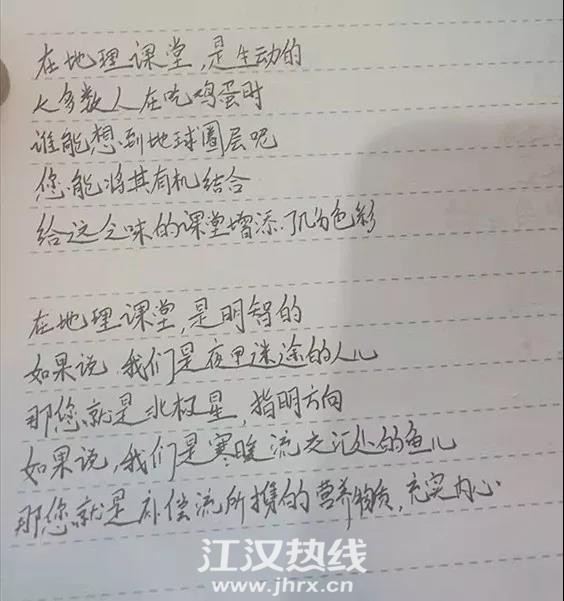 在地理课堂,是生动的
大多数人在吃鸡蛋时
谁能想到地球圈层呢
您能将其有机结合
给这乏味的课堂增添了几分色彩
在地理课堂,是明智的
如果说 我们是夜里迷途的人儿
那您就是北极星,指明方向
如果说,我们是寒暖流交汇处的鱼儿
那您就是补偿流所携的营养物质,充实内心
江汉热线
www.jhrx.cn